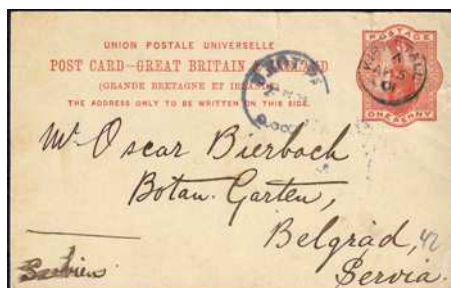 UNION POSTALE UNIVERSELLE
POSTAGE
POST CARD—GREAT BRITAIN & IRELAND
(GRANDE BRETAGNE ET IRLANDE)
THE ADDRESS ONLY TO BE WRITTEN ON THIS SIDE.
ONE PENNY
Mr Oscar Bierbach
Botan. Garten,
Belgrad, 42
Serbien
Servia.